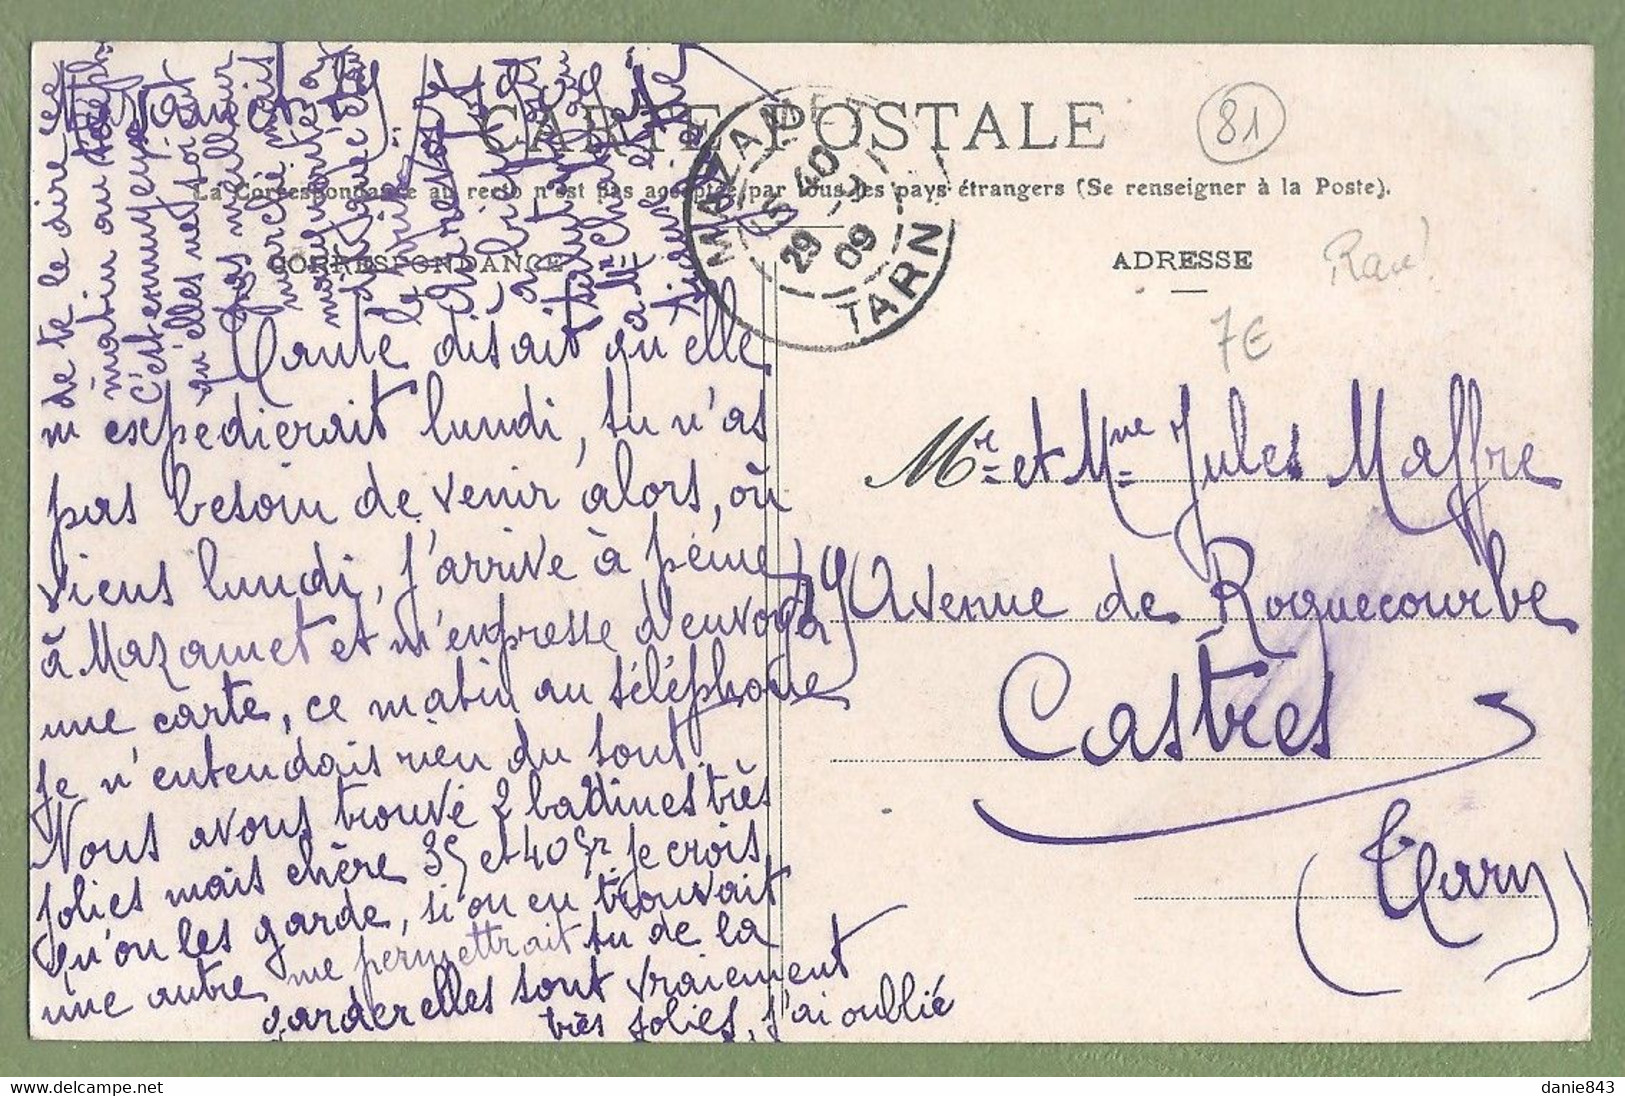 CARTE POSTALE
La Correspondance au recto n'est pas acceptée par tous les pays étrangers (Se renseigner à la Poste).
CORRESPONDANCE
ADRESSE
81
7€
MAZAMET
15 40
29
09
TARN
Tante disait qu'elle
m'expédierait lundi, tu n'as
pas besoin de venir alors, où
viens lundi, j'arrive à peine
à Mazamet et m'empresse d'envoyer
une carte, ce matin au téléphone
je n'entendais rien du tout.
Nous avons trouvé 2 badines très
jolies mais chère 35 et 40 fr je crois
qu'on les garde, si on en trouvait
une autre me permettrait tu de la
garder elles sont vraiement
très jolies, j'ai oublié
de te le dire ce
matin au téléph.
c'est ennuyeux
qu'elles ne soient
pas meilleur
marché mais
Mr et Mme Jules Maffre
19 Avenue de Roquecourbe
Castres
(Tarn)
danie843